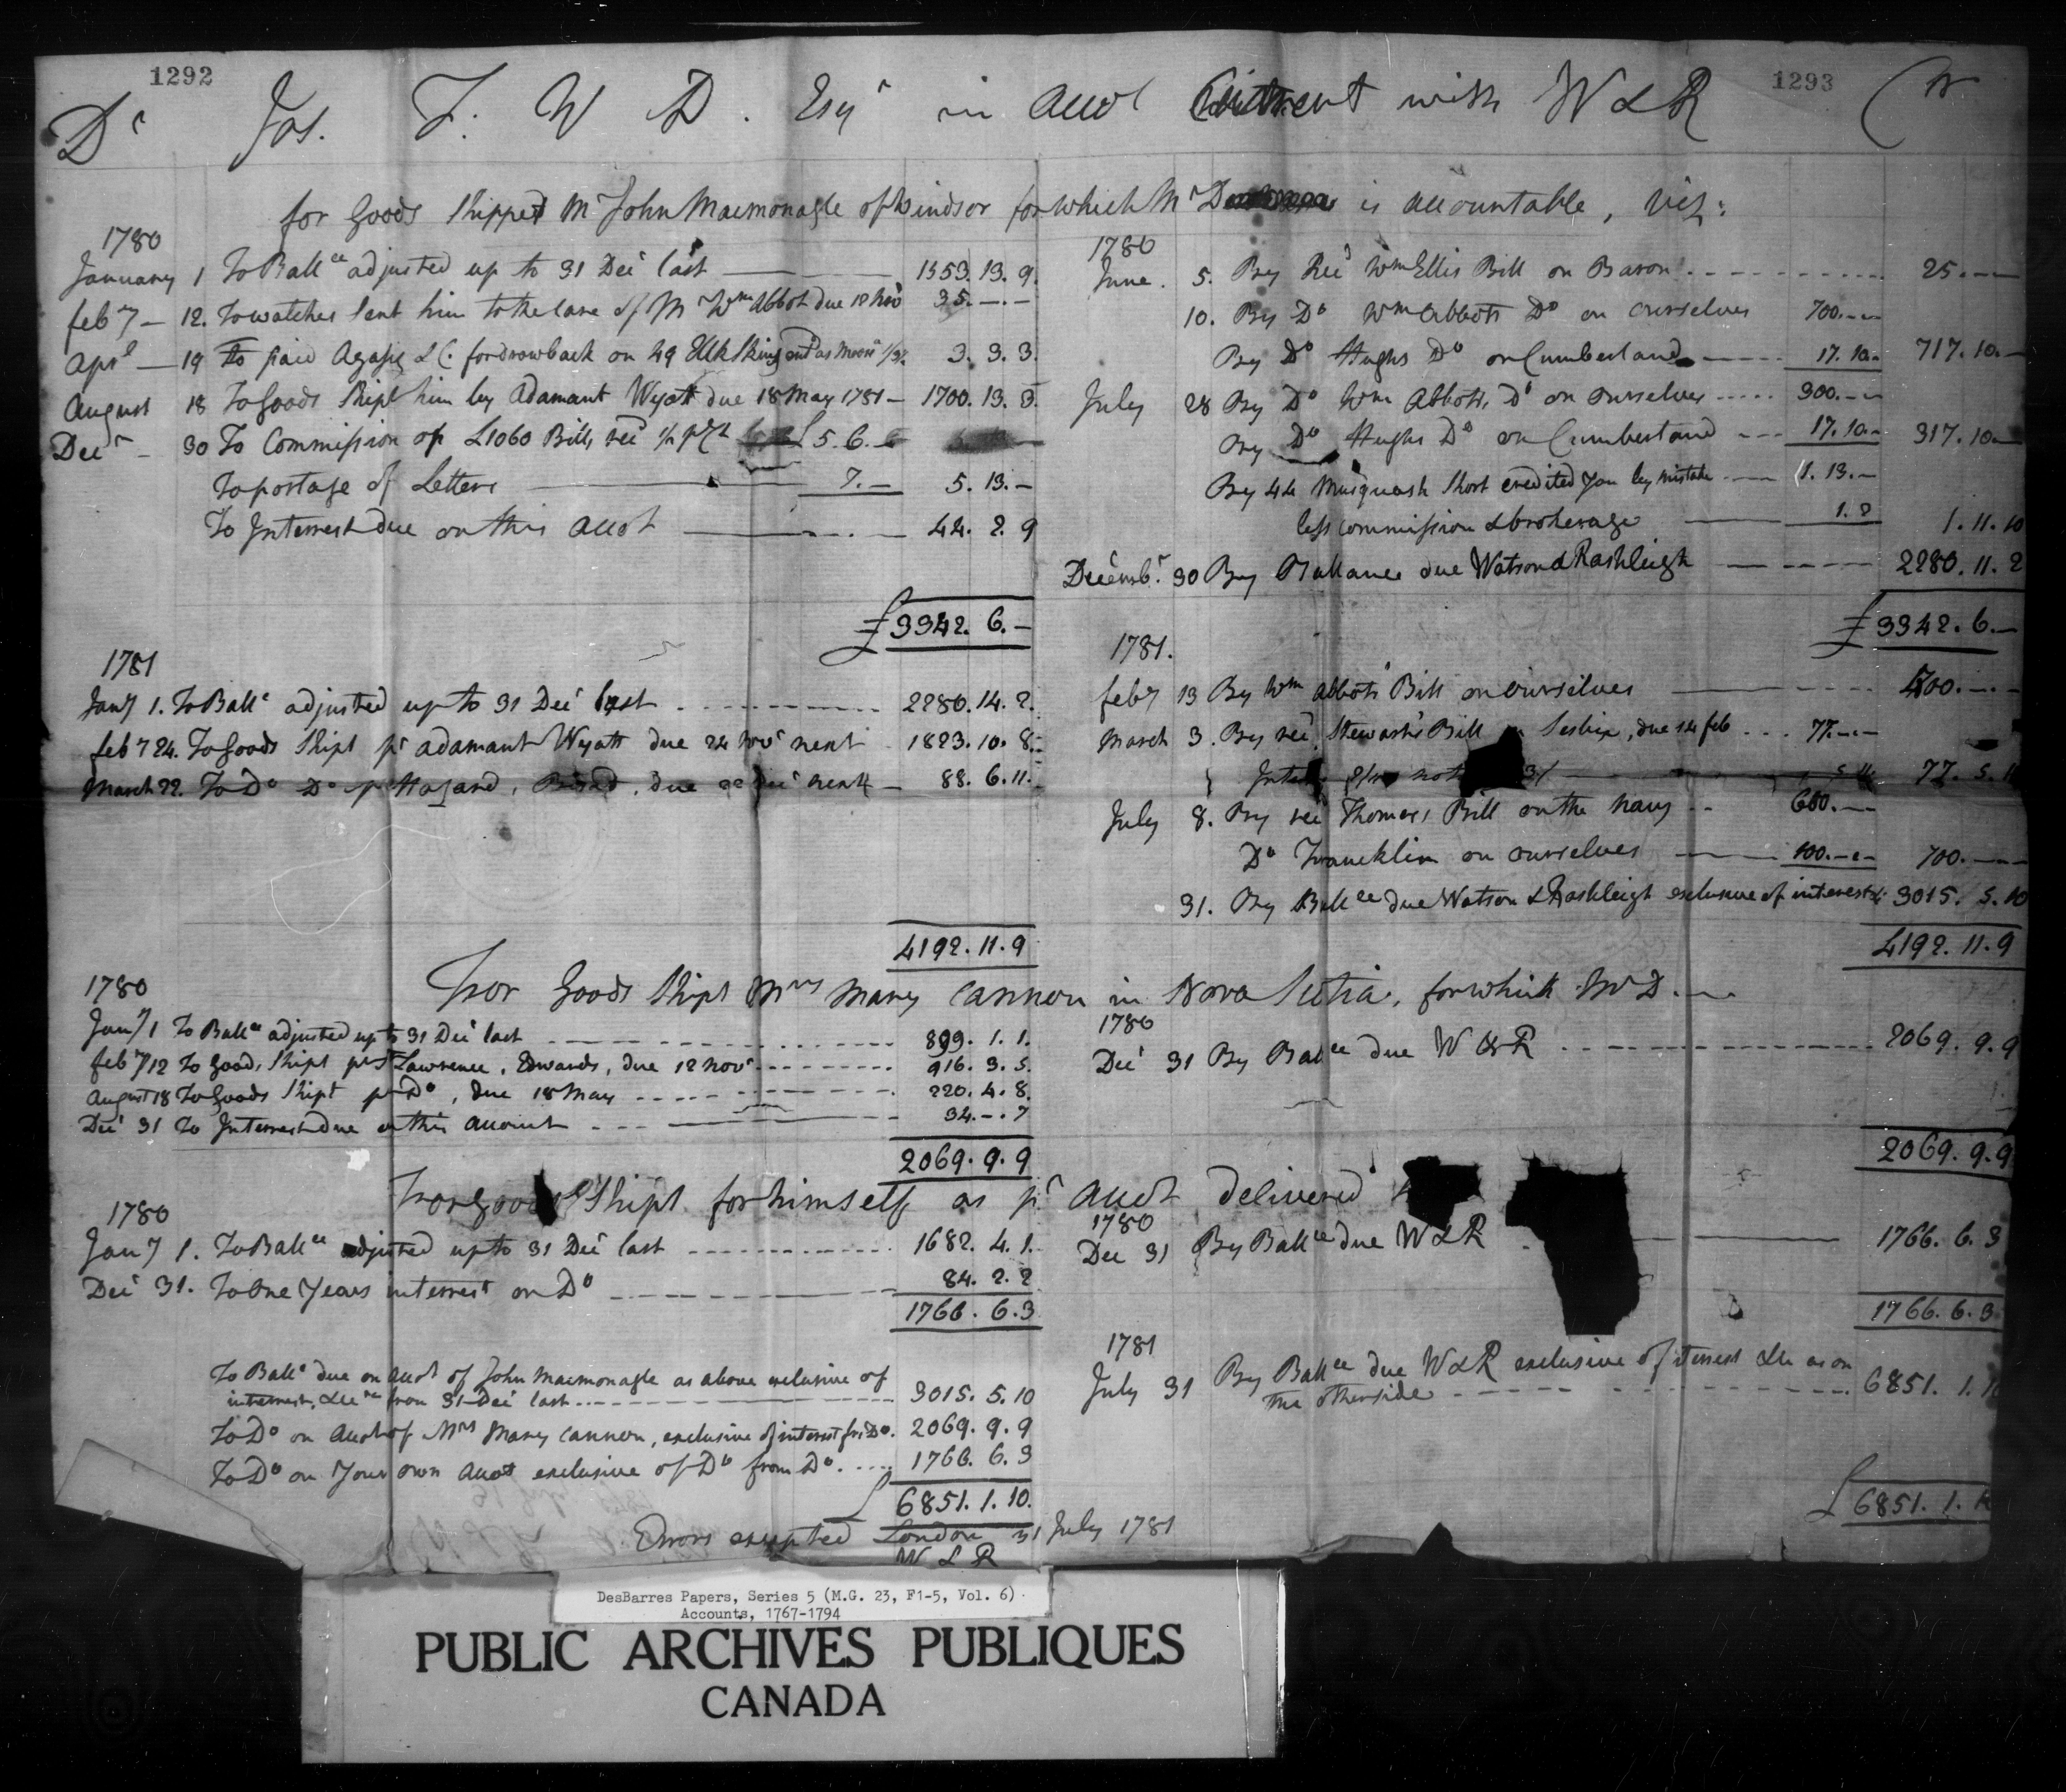 1292
1293
Dr Jos. F. W D. Esqr in Accot Current with W & R Cr
for Goods Shipped Mr John Macmonagle of Windsor for which Mr D is accountable, Viz:
1780
January 1 To Ballce adjusted up to 31 Decr last 1553. 13. 9.
feby 12. To watches sent him to the care of Mr Wm Abbot due 12 Novr 35. —. —
Aprl 19 To paid Agassiz & C. for drawback on 49 Elk Skins 3. 3. 3.
August 18 To Goods Shipt him by Adamant Wyatt due 18 May 1781 — 1700. 13. 3.
Decr 30 To Commission on £1060 Bills recd £ 5. 6. —
To postage of Letters 7. — 5. 13. —
To Interest due on this Accot 44. 2. 9
£ 3342. 6. —
1781
Jany 1. To Ballce adjusted up to 31 Decr last 2280. 14. 2.
feby 24. To Goods Shipt pr Adamant Wyatt due 24 Novr next 1823. 10. 8.
March 22. To Do Do pr Hazard, due 22 Decr next 88. 6. 11.
4192. 11. 9
1780
June 5. By Recd Wm Ellis Bill on Baron 25. — —
10. By Do Wm Abbotts Do on ourselves 700. — —
By Do Hughs Do on Cumberland 17. 10. — 717. 10. —
July 28 By Do Wm Abbotts Do on ourselves 300. — —
By Do Hughs Do on Cumberland 17. 10. — 317. 10. —
By 44 Musquash Short credited you by mistake 1. 13. —
less commission & brokerage 1. 2 1. 11. 10
Decembr. 30 By Ballance due Watson & Rashleigh 2280. 11. 2
£ 3342. 6. —
1781.
feby 13 By Wm Abbots Bill on ourselves 400. — —
March 3. By recd Stewarts Bill on due 14 feb 77. — —
77. 5. 11
July 8. By recd Thomas's Bill on the Navy 600. — —
Do Francklin on ourselves 100. — — 700. — —
31. By Ballce due Watson & Rashleigh exclusive of interest &c 3015. 5. 10
4192. 11. 9
For Goods Shipt Mrs Mary Cannon in Nova Scotia, for which Mr D.
1780
Jany 1 To Ballce adjusted up to 31 Decr last 899. 1. 1.
feby 12 To Goods Shipt pr St Lawrence, Edwards, due 12 Novr 916. 3. 5.
August 18 To Goods Shipt pr Do, due 18 May 220. 4. 8.
Decr 31 To Interest due on this Account 34. —. 7
2069. 9. 9
1780
Decr 31 By Balce due W & R 2069. 9. 9
2069. 9. 9
For Goods Shipt for himself as pr Accot delivered
1780
Jany 1. To Ballce adjusted up to 31 Decr last 1682. 4. 1.
Decr 31. To One Years interest on Do 84. 2. 2
1766. 6. 3
1780
Dec 31 By Ballce due W & R 1766. 6. 3
1766. 6. 3
To Ballce due on Accot of John Macmonagle as above exclusive of
interest, &c from 31 Decr last 3015. 5. 10
To Do on Accot of Mrs Mary Cannon, exclusive of interest fm Do. 2069. 9. 9
To Do on Your own Accot exclusive of Do from Do. 1766. 6. 3
£ 6851. 1. 10.
1781
July 31 By Ballce due W & R exclusive of interest &c as on
the otherside 6851. 1. 10
£ 6851. 1. 10
Errors excepted London 31 July 1781
W & R
DesBarres Papers, Series 5 (M.G. 23, F1-5, Vol. 6)
Accounts, 1767-1794
PUBLIC ARCHIVES PUBLIQUES
CANADA